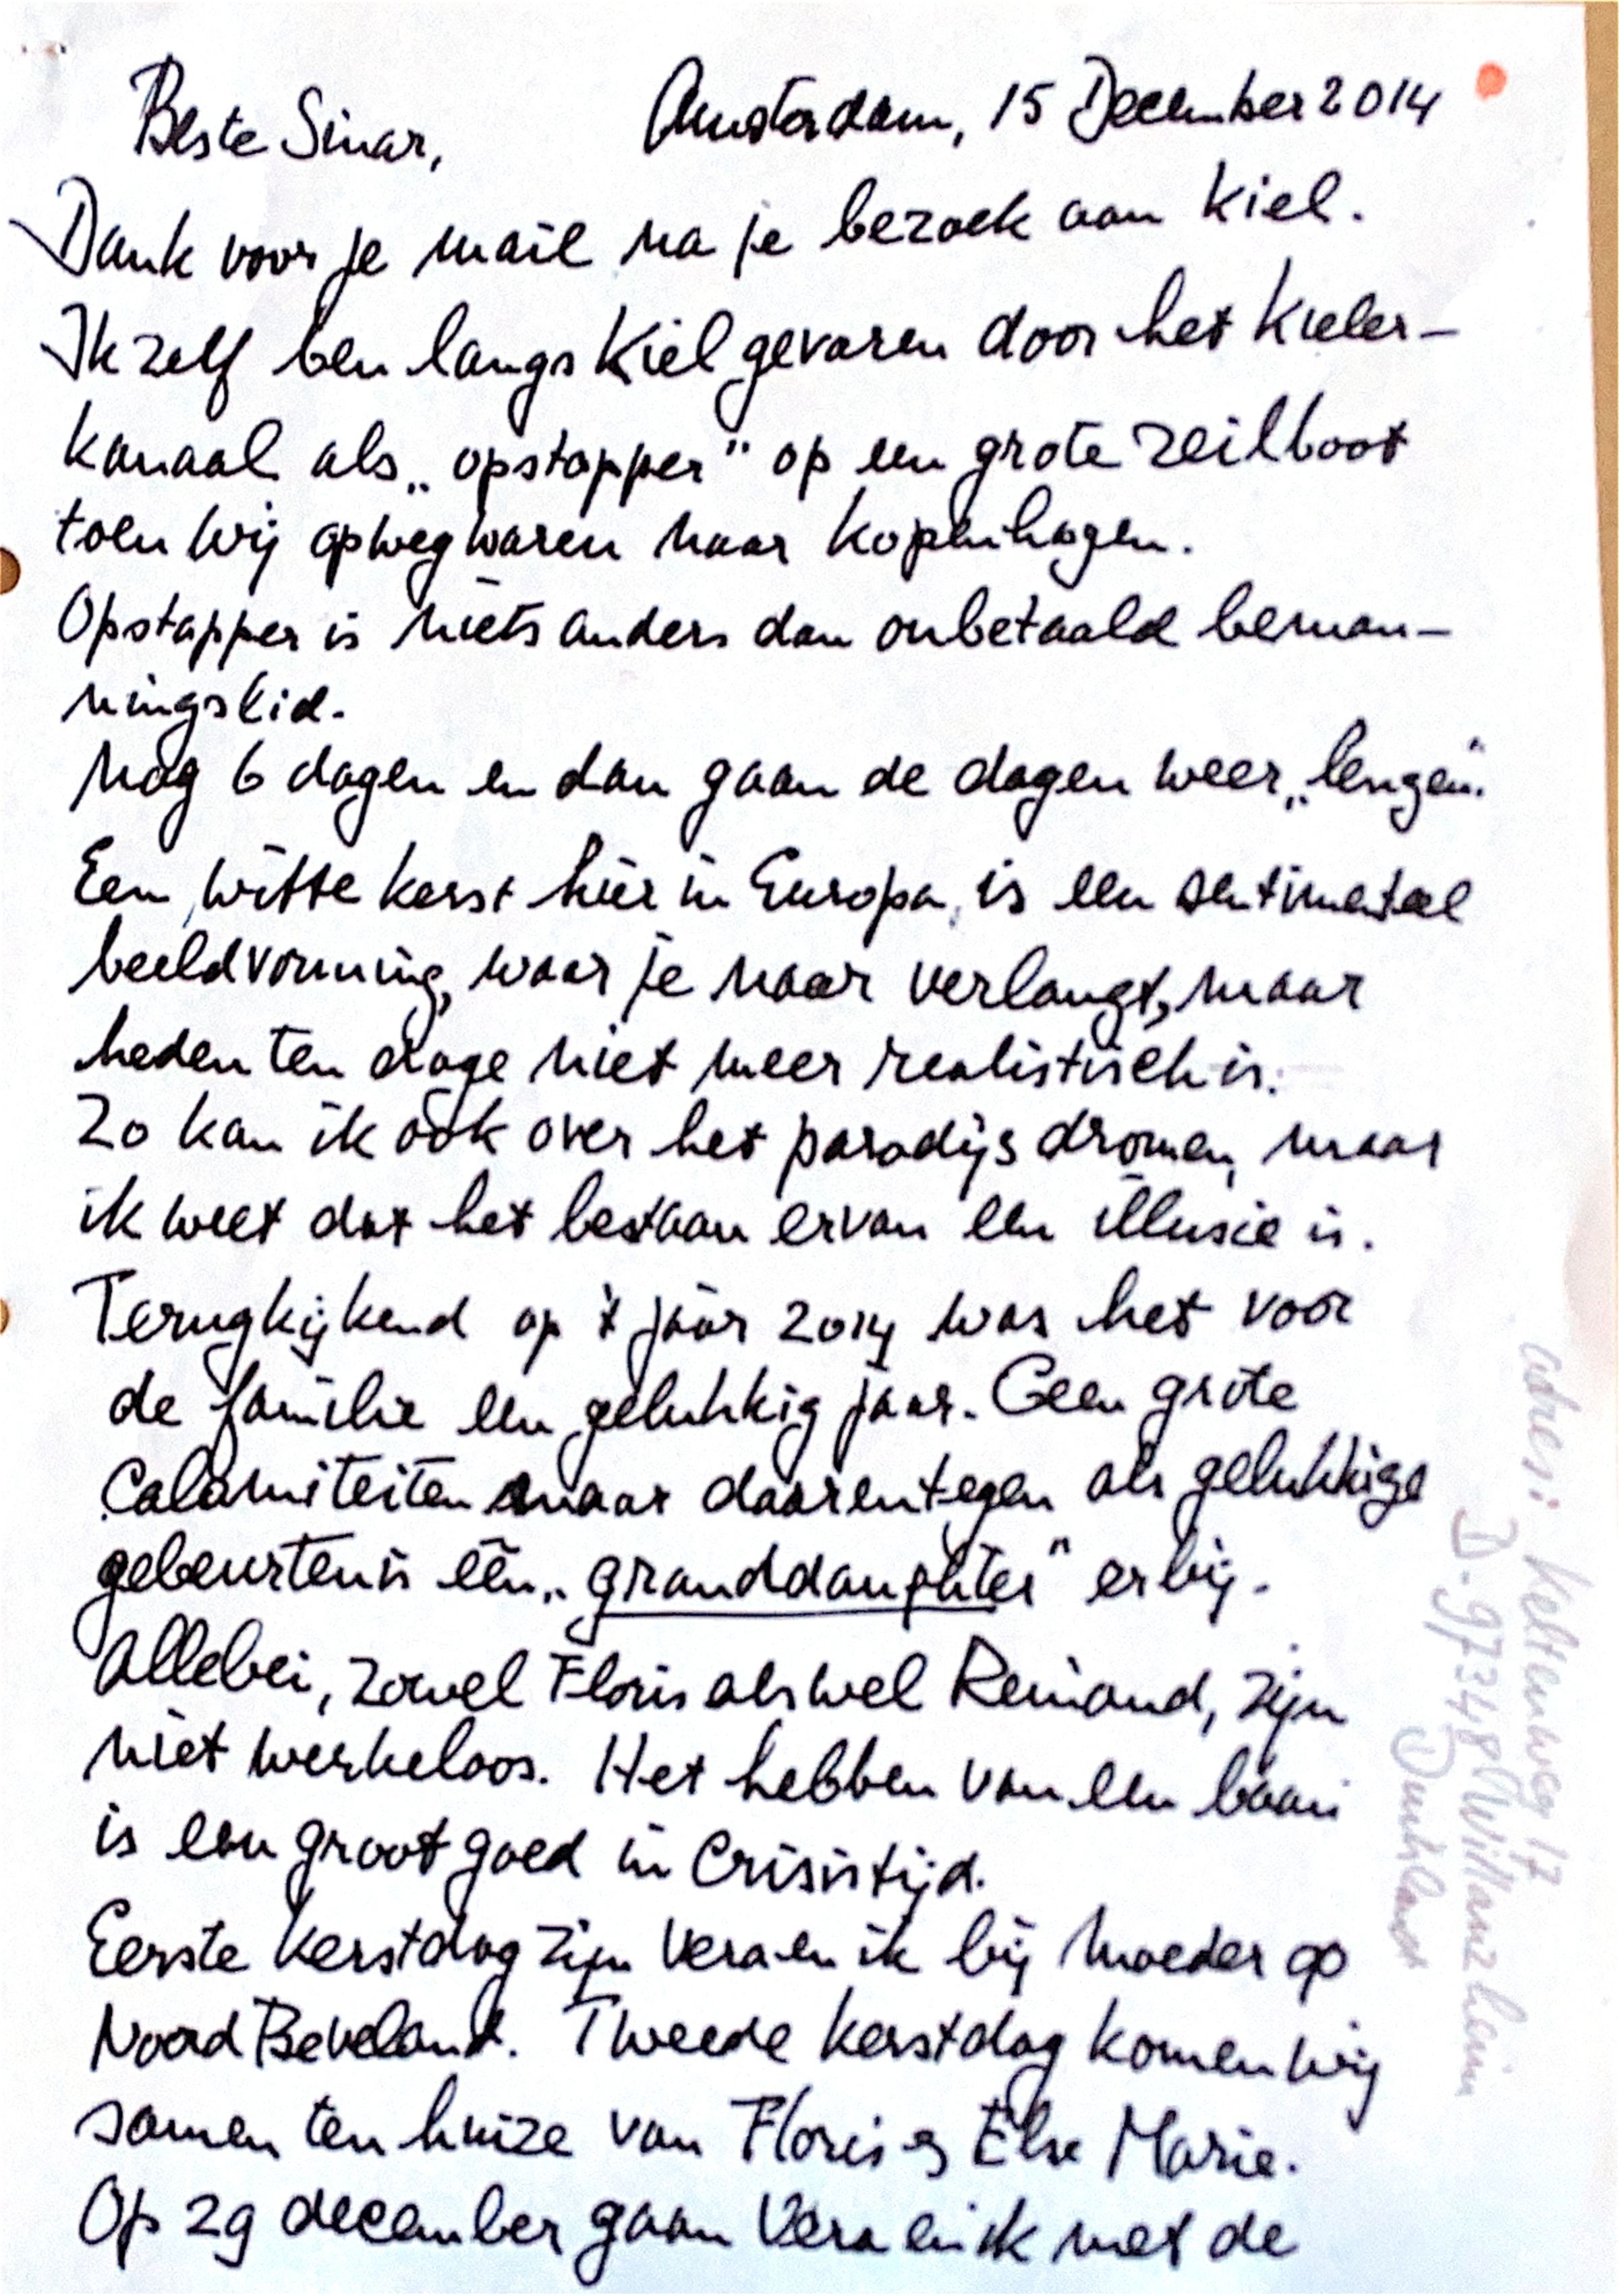 Beste Sinar, Amsterdam, 15 December 2014
Dank voor je mail na je bezoek aan Kiel.
Ik zelf ben langs Kiel gevaren door het Kieler-
kanaal als „opstapper" op een grote zeilboot
toen wij op weg waren naar Kopenhagen.
Opstapper is niets anders dan onbetaald beman-
ningslid.
Nog 6 dagen en dan gaan de dagen weer „lengen".
Een witte kerst hier in Europa, is een sentimenteel
beeldvorming, waar je naar verlangt, maar
heden ten dage niet meer realistisch is.
Zo kan ik ook over het paradijs dromen, maar
ik weet dat het bestaan ervan een illusie is.
Terugkijkend op 't jaar 2014 was het voor
de familie een gelukkig jaar. Geen grote
Calamiteiten maar daarentegen als gelukkige
gebeurtenis één „granddaughter" erbij.
Allebei, zowel Floris alswel Reinoud, zijn
niet werkeloos. Het hebben van een baan
is een groot goed in Crisistijd.
Eerste kerstdag zijn Vera en ik bij moeder op
Noord Beveland. Tweede kerstdag komen wij
samen ten huize van Floris & Else Marie.
Op 29 december gaan Vera en ik met de
adres: Keltenweg 17
D-97348 Willanzheim
Duitsland